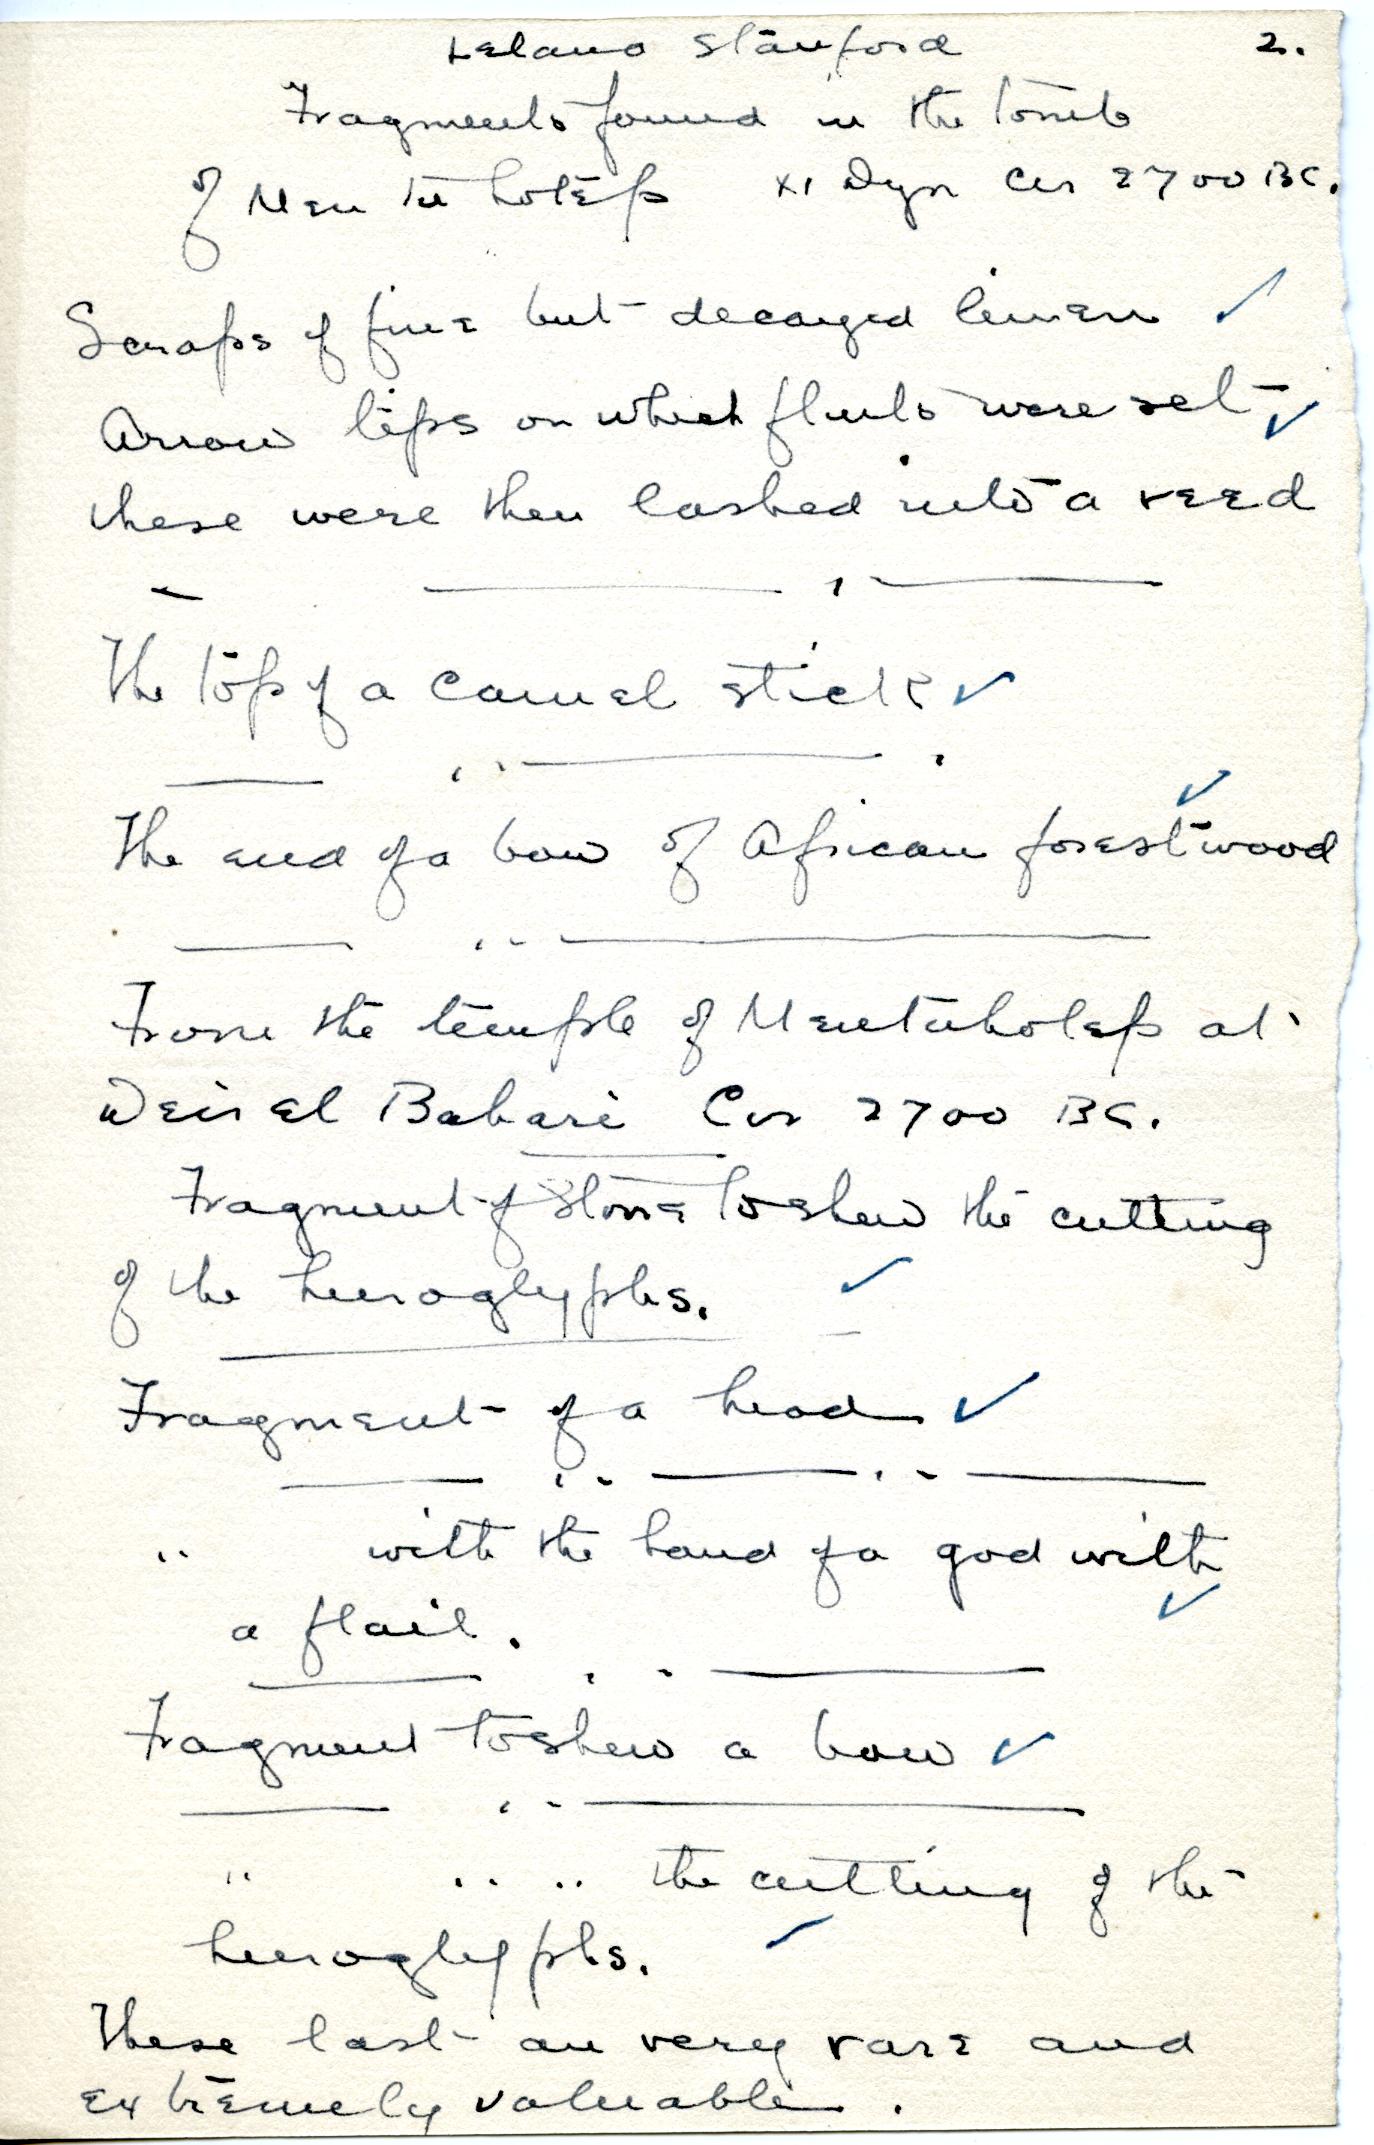 Leland Stanford 2.
Fragments found in the tomb
of Men tu hotep XI Dyn Cir 2700 BC.
Scraps of fine but decayed linen ✓
Arrow tips on which flints were set ✓
these were then lashed into a reed
The top of a camel stick ✓
✓
The end of a bow of African forest wood
From the temple of Mentuhotep at
Deir el Bahari Cir 2700 BC.
Fragment of stone to shew the cutting
of the hieroglyphs. ✓
Fragment of a head ✓
" with the hand of a god with
a flail. ✓
Fragment to shew a bow ✓
" " " the cutting of the
hieroglyphs. ✓
These last are very rare and
extremely valuable.